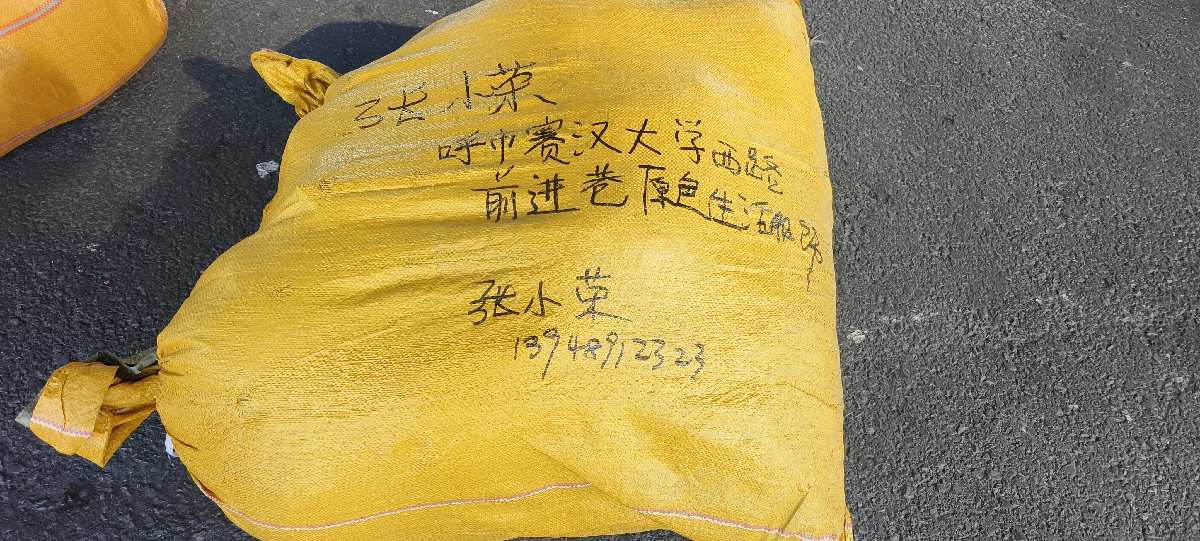 张小荣
呼市赛汉大学西路
前进巷原色生活服饰
张小荣
13948912323